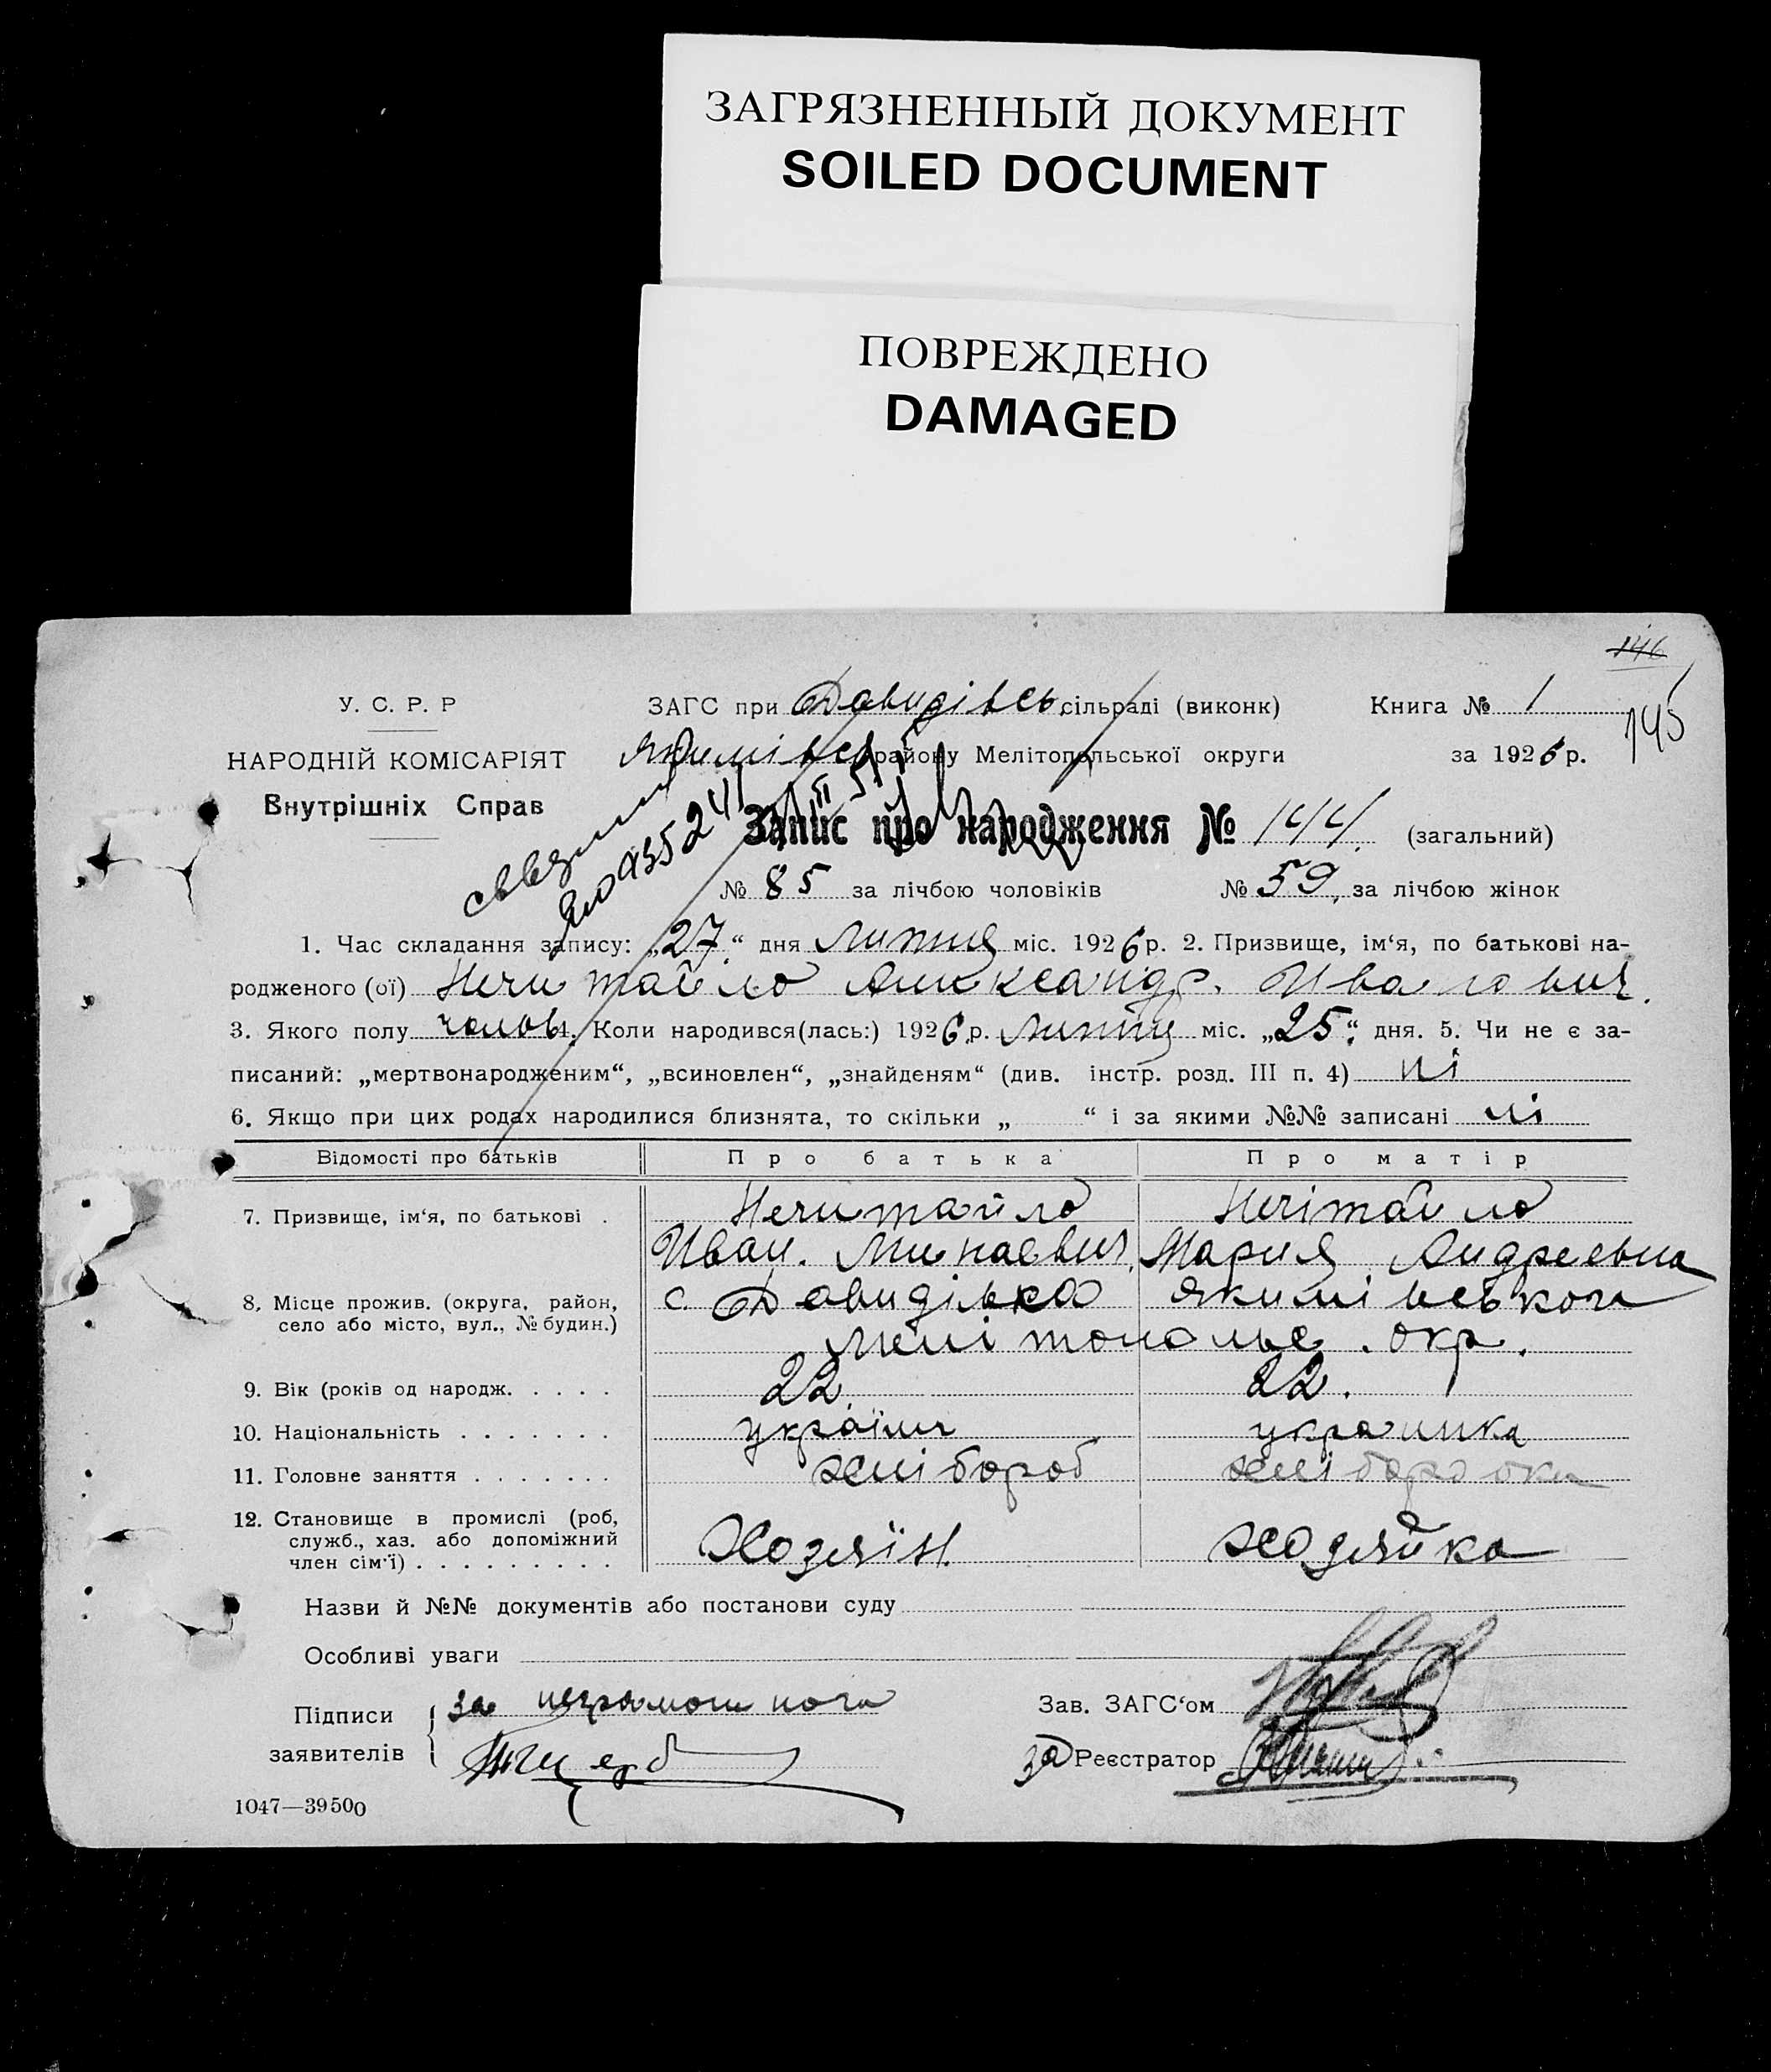 ЗАГРЯЗНЕННЫЙ ДОКУМЕНТ
SOILED DOCUMENT
ПОВРЕЖДЕНО
DAMAGED
146
145
У. С. Р. Р
ЗАГС при Давидівсь сільраді (виконк)
Книга № 1
НАРОДНІЙ КОМІСАРІЯТ
Якимівсь району Мелітопольської округи
за 1926 р.
Внутрішніх Справ
Запис про народження № 144. (загальний)
№ 85 за лічбою чоловіків № 59, за лічбою жінок
1. Час складання запису: „27“ дня Липня міс. 1926 р. 2. Призвище, ім‘я, по батькові на-
родженого (ої) Нечитайло Александр. Иванович.
3. Якого полу чолов 4. Коли народився(лась:) 1926 р. Липня міс. „25“ дня. 5. Чи не є за-
писаний: „мертвонародженим“, „всиновлен“, „знайденям“ (див. інстр. розд. III п. 4) ні
6. Якщо при цих родах народилися близнята, то скільки „ “ і за якими №№ записані ні
Відомості про батьків
Про батька
Про матір
7. Призвище, ім‘я, по батькові .
Нечитайло
Нечітайло
Иван. Минаевич,
Мария Андреевна
8. Місце прожив. (округа, район,
село або місто, вул., № будин.)
с. Давидівка Якимівського
Мелітопольс. окр.
9. Вік (років од народж. . . . .
22.
22.
10. Національність . . . . . . .
українц
украинка
11. Головне заняття . . . . . . .
хлібороб
хліборобка
12. Становище в промислі (роб,
служб., хаз. або допоміжний
член сім‘ї) . . . . . . . . .
Хозяїн.
хозяйка
Назви й №№ документів або постанови суду
Особливі уваги
Підписи
заявителів
за неграмотного
Зав. ЗАГС‘ом
за Реєстратор
1047—39500